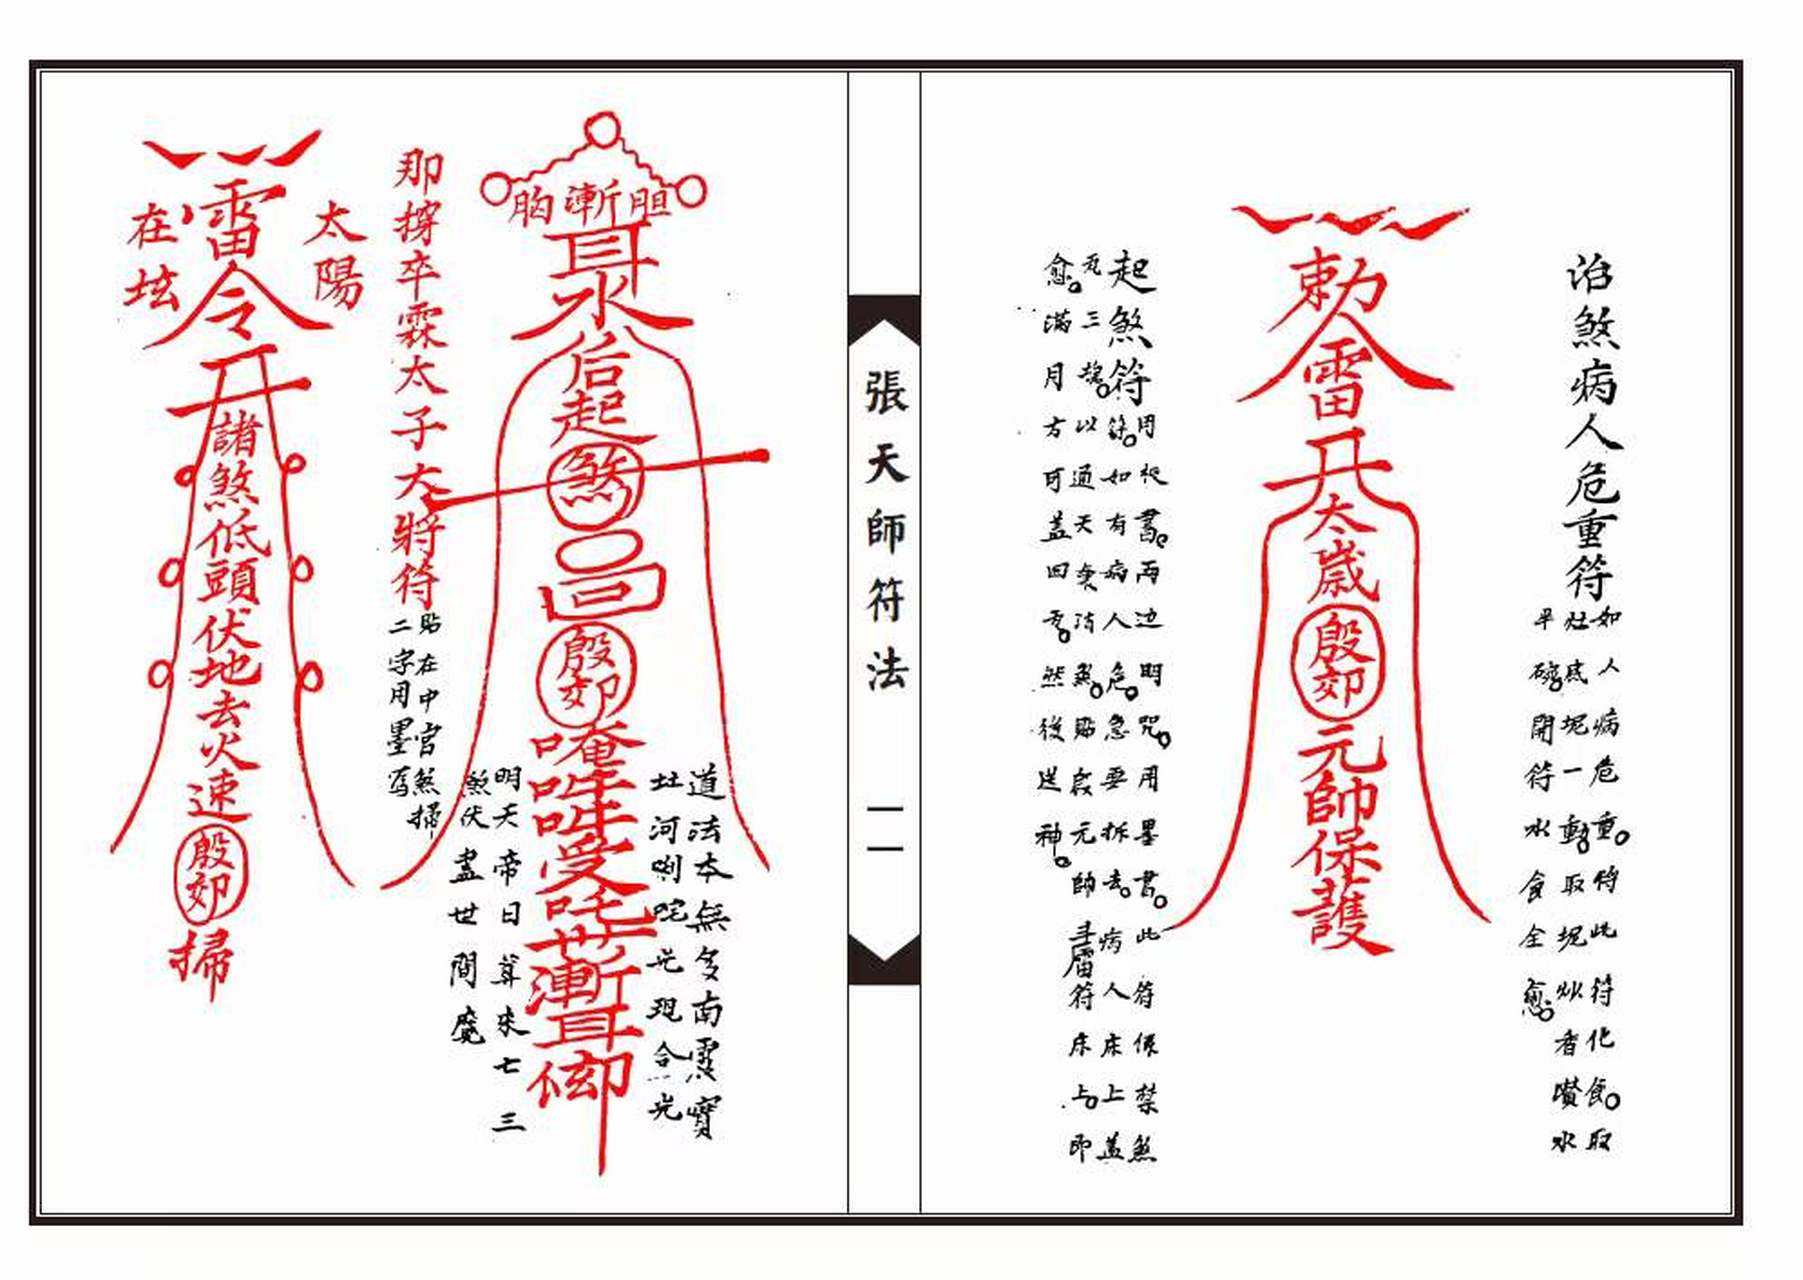 治煞病人危重符
如人病危重將此符化食取
灶底坭一動取坭炒香噴水
半碗開符水食全愈
敕令雷
太歲殷郊元帥保護
起煞符
用硃書兩边明咒用墨書此符候禁煞
符如有病人危急要拆去病人床上蓋
以通天
煞貼殷元帥
符床上即
愈滿月方可蓋回
然後送神
張天師符法
一一
胸漸胆
耳水
后起煞
殷郊
唵吽吽
受吒
漸耳
道法本無多南靈寶
灶河喇咜光現合光
明天帝日算來七三
煞伏盡世間魔
那撈卒霖太子大將符
貼在中宮煞掃
二字用墨写
太陽
雷令
在坛
諸煞低頭伏地去火速殷郊掃